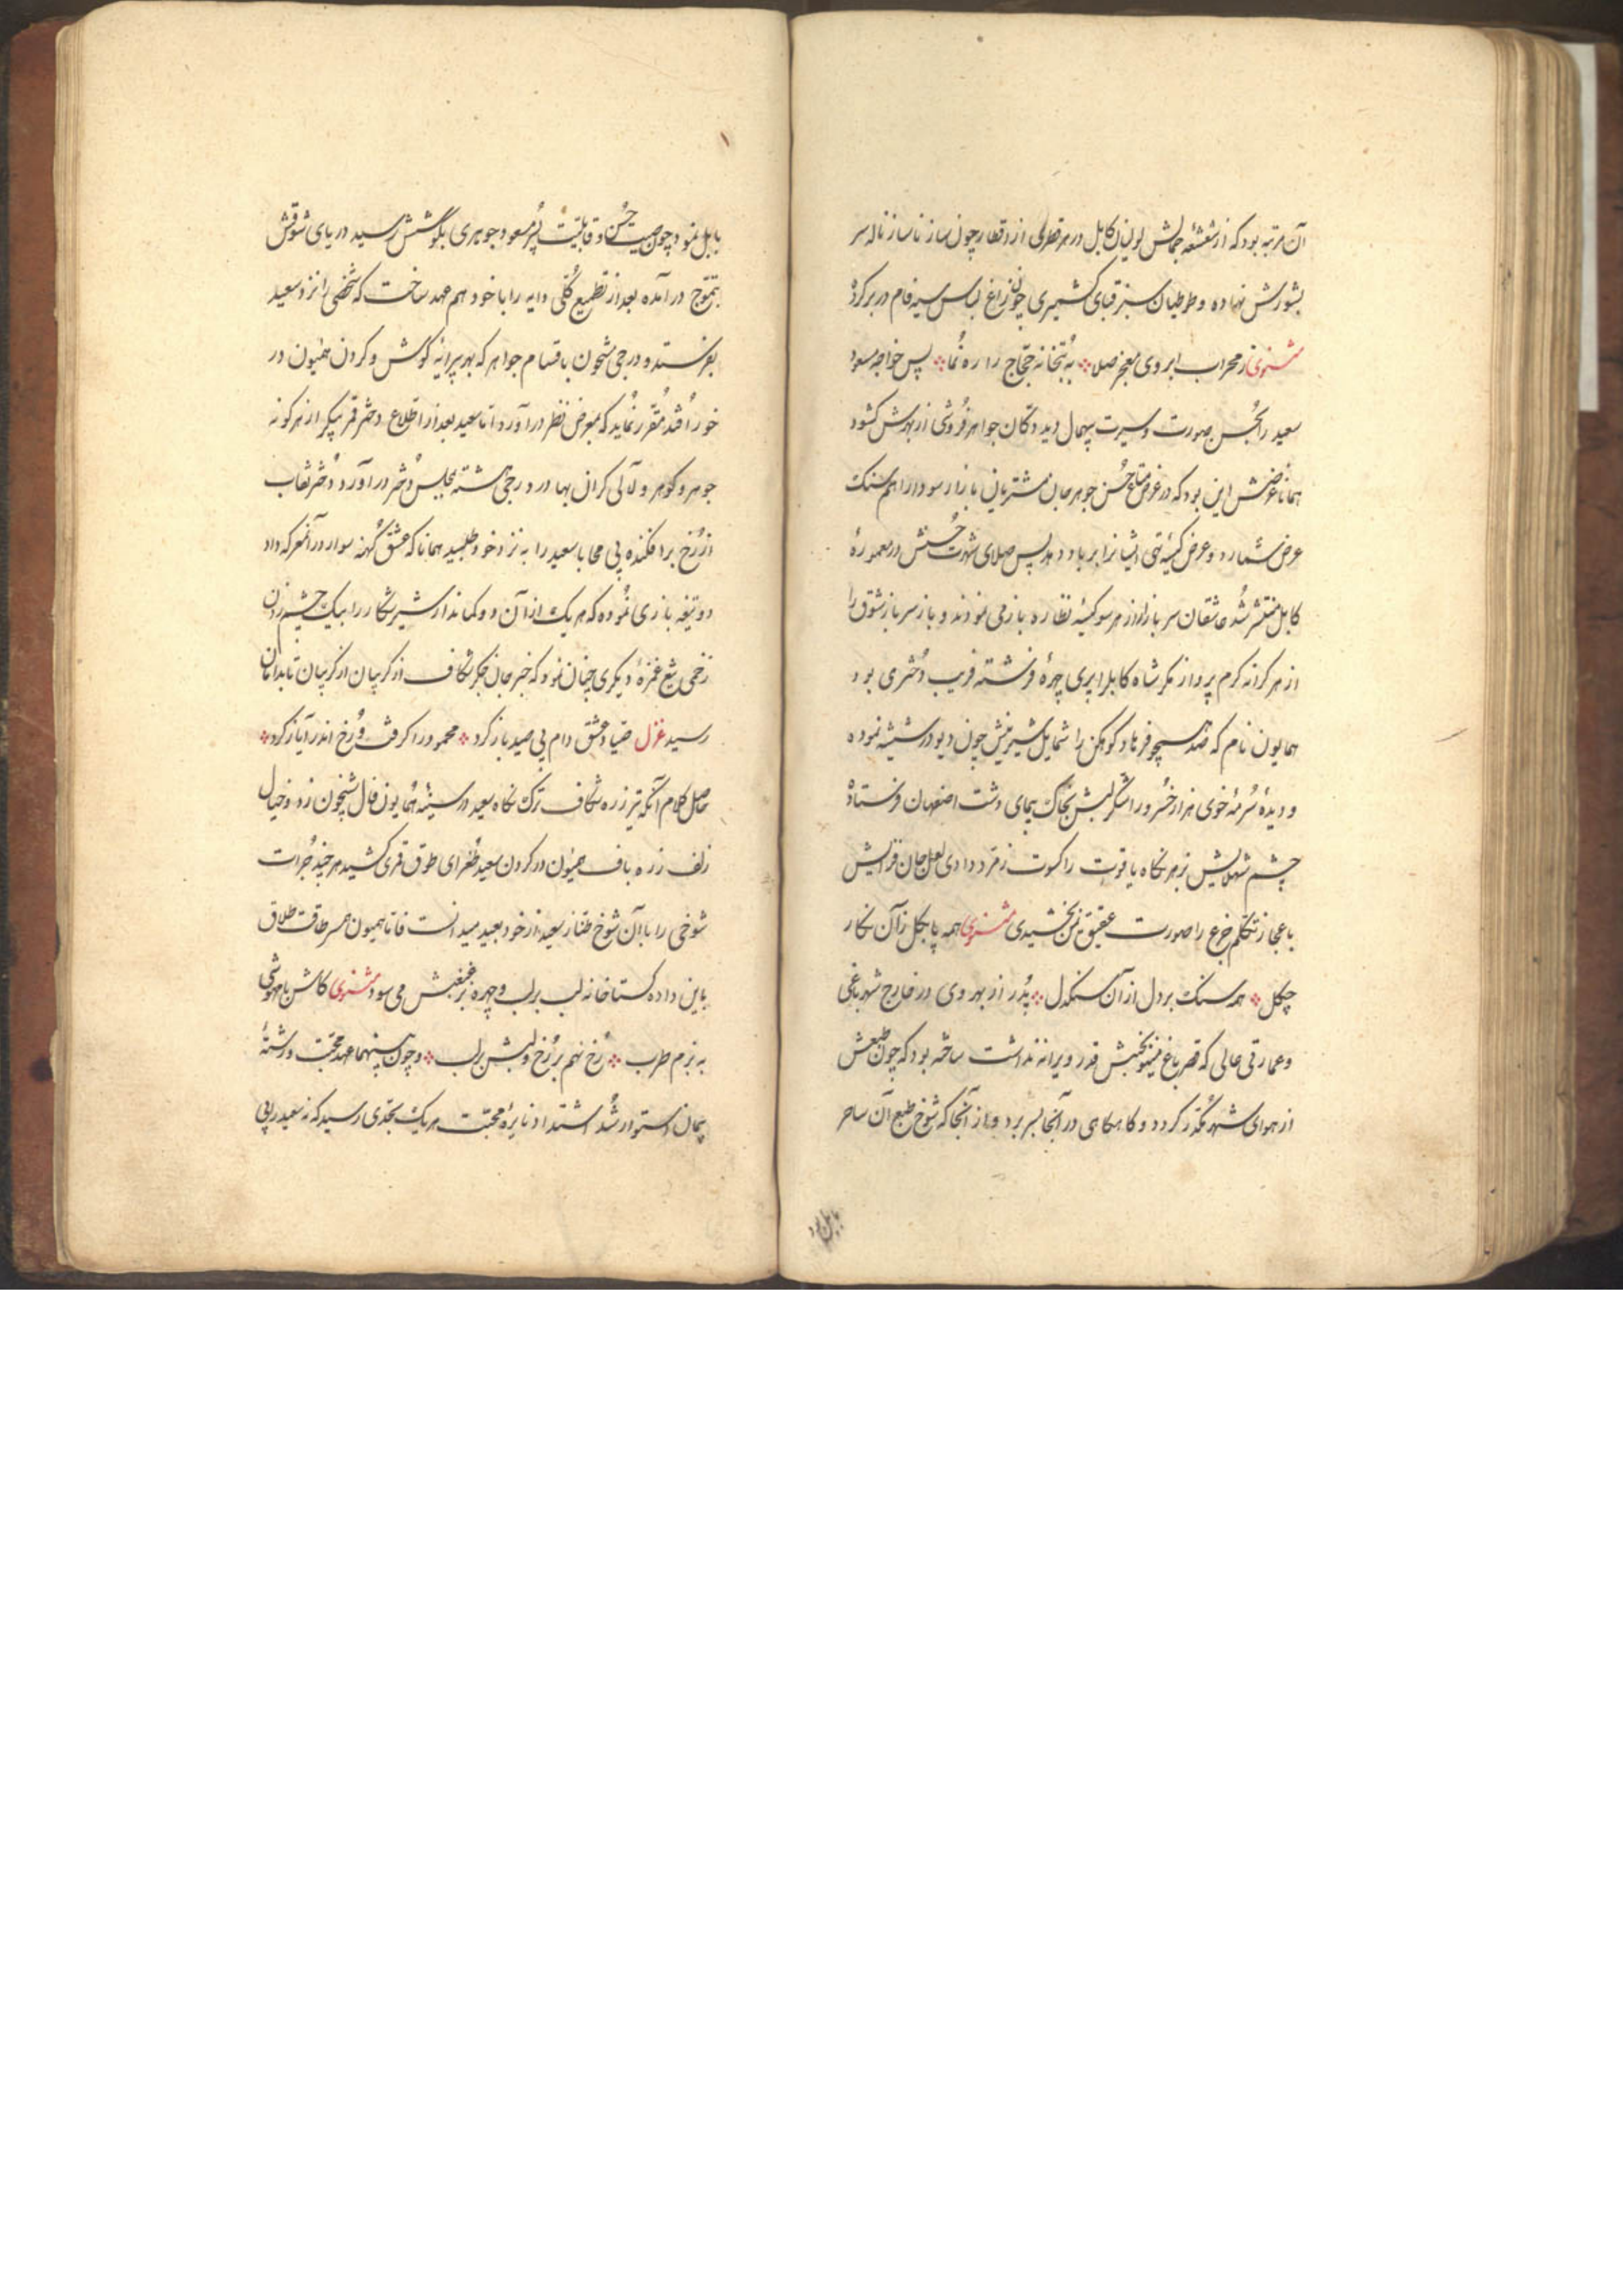 آن مرتبه بود که از شعشعهٔ جمالش لولیان کابل در هر قطری از اقطار چون ساز ناساز ناله سر
بشورش نهاده و طوطیان سبز قبای کشمیری چون زاغ لباس سیه فام در بر کرد
مثنوی ز محراب ابروی معجز صلا به بتخانه حجاج را ره نما پس خواجه مسعود
سعید را بحسن صورت و سیرت بیهمال دید دکان جواهر فروشی از بهرش کشود
همانا غرضش این بود که در عوض متاع حسن جوهر جان مشتریان بازار سودا را هم سنک
عرض شمارد و عرض کیسهٔ تهی ایشانرا بر باد دهد پس صلای شهرت حسنش در معمورهٔ
کابل منتشر شد عاشقان سرباز از هر سو کیسهٔ نظاره باز می نمودند و باز سر باز شوق را
از هر کرانه کرم پرواز مکر شاه کابل را پری چهرهٔ فرشته فریب دختری بود
همایون نام که صد همچو فرهاد کوهکن را شمایل شیرینش چون دیو در شیشه نموده
و دیدهٔ سرمه خوی هزار خسرو را شکر لبش بخاک پیمای دشت اصفهان فرستاد
چشم شهلایش بزهر نکاه یاقوت را کسوت زمرد دادی لعل جان فزایش
باعجاز تکلم جزع را صورت عقیق یمن بخشیدی مثنوی همه پا بکل ز آن نکار
چکل همه سنک بر دل از آن سنکدل پدر از بهر وی در خارج شهر باغی
و عمارتی عالی که قصر باغ مینو بجنبش قدر ویرانه نداشت ساخته بود که چون طبعش
از هوای شهر مکدر کردد و کاهکاهی در آنجا بسر برد و از آنجا که شوخ طبع آن ساحر
بابل نمود
بابل نمود چون صیت حسن و قابلیت پور مسعود جوهری بگوشش رسید دریای شوقش
بتموج در آمده بعد از تطمیع کلی دایه را با خود هم عهد ساخت که شخصی را نزد سعید
بفرستد و درجی مشحون باقسام جواهر که بهر پیرایه کوش و کردن همیون در
خور افتد مقرر نماید که بمعرض نظر در آورد اما سعید بعد از اطلاع دختر قمر پیکر از هر کونه
جوهر و کوهر و لآلی کران بها در درجی هشته بمجلس دختر در آورد دختر نقاب
از رخ بر افکنده بی محابا سعید را به نزد خود طلبید همانا که عشق کهنه سوار در آنمعرکه داد
دو تیغه بازی نموده که هر یک از آن دو کماندار شیر شکار را بیک چشم زدن
زخمی تیغ غمزهٔ دیکری چنان نمود که خنجر جان جکر شکاف از کریبان تا بدامان
رسید غزل صیاد عشق دام پی صید باز کرد محمود را کرفت و رخ اندر ایاز کرد
حاصل کلام آنکه تیر زره شکاف ترک نکاه سعید در سینهٔ همایون فال شبخون زد و خیال
زلف زره باف همیون در کردن سعید طغرای طوق قمری کشید هر چند جرات
شوخی را با آن شوخ طناز سعید از خود بعید میدانست فاما همیون همسر طاقت طلاق
باین داده کستاخانه لب بر لب و چهره بر غبغبش می سود مثنوی کاش با مهوشی
به بزم طرب رخ نهم بر رخ و لبش بر لب و چون بینهما عهد محبت و رشتهٔ
پیمان استوار شد اشتداد نایرهٔ محبت هر یک بحدی رسید که نه سعید را بی